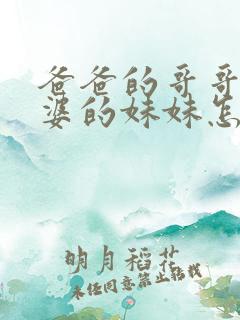 爸爸的哥哥
婆的妹妹怎
明月稻花
未经同意禁止转载